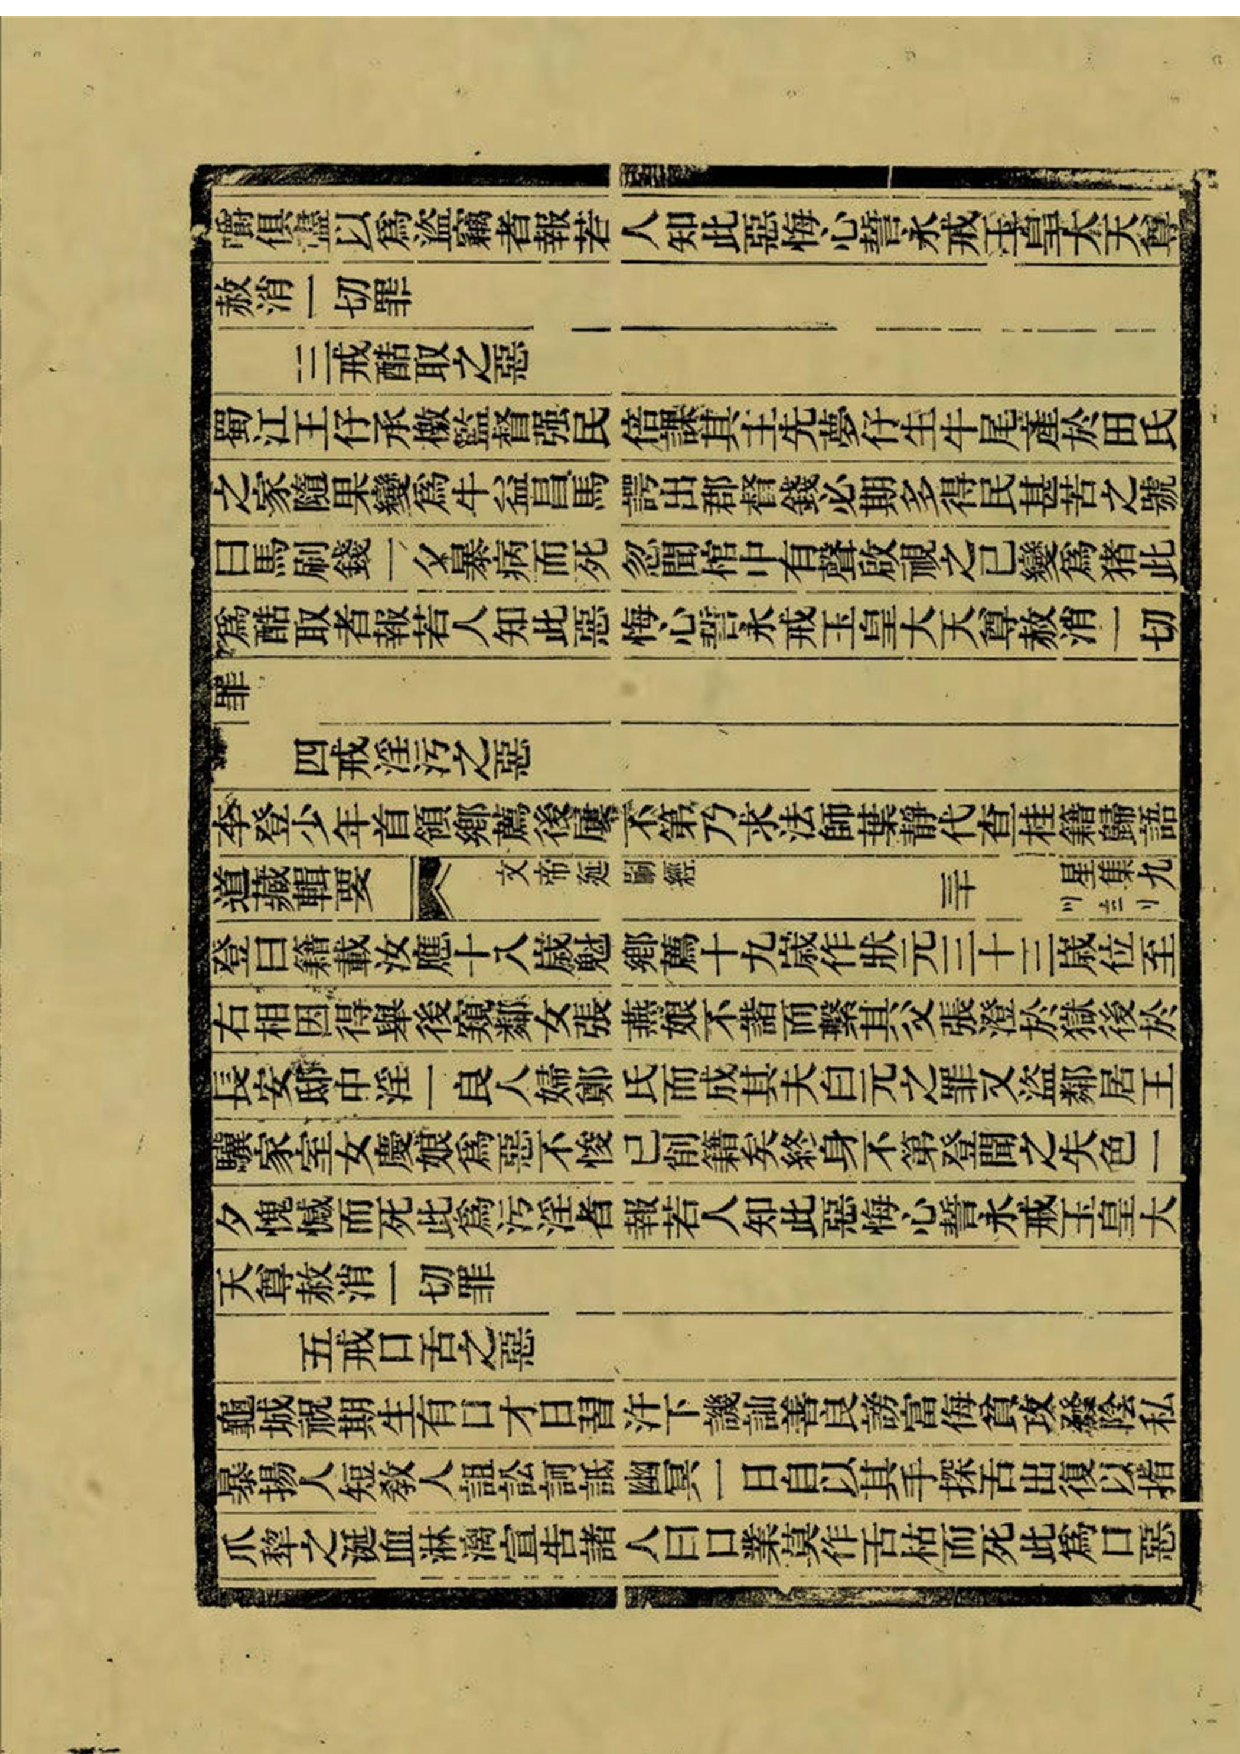 嚼俱盡以爲盜竊者報若人知此惡悔心誓永戒玉皇大天尊
赦消一切罪
三戒酷取之惡
蜀江王仔承檄監督强民倍課其主先夢仔生牛尾產於田氏
之家隨果變爲牛益昌馬諤出郡督錢必期多得民甚苦之號
曰馬刷錢一夕暴病而死忽聞棺中有聲啟視之已變爲猪此
爲酷取者報若人知此惡悔心誓永戒玉皇大天尊赦消一切
罪
四戒淫污之惡
李登少年首領鄉薦後屢不第乃求法師葉靜代查桂籍歸語
道藏輯要 文帝延嗣經 三十 星集九
登曰籍載汝應十八歲魁鄉薦十九歲作狀元三十三歲位至
右相因得舉後窺鄰女張燕娘不諧而繫其父張澄於獄後於
長安邸中淫一良人婦鄭氏而成其夫白元之罪又盜鄰居王
驥家室女慶娘爲惡不悛已削籍矣終身不第登聞之失色一
夕愧憾而死此爲污淫者報若人知此惡悔心誓永戒玉皇大
天尊赦消一切罪
五戒口舌之惡
龜城祝期生有口才日習汗下譏訕善良謗富侮貧攻發陰私
暴揚人短教人詛訟訶詆幽冥一日自以其手探舌出復以指
爪犂之涎血淋漓宣告諸人曰口業莫作舌枯而死此爲口惡